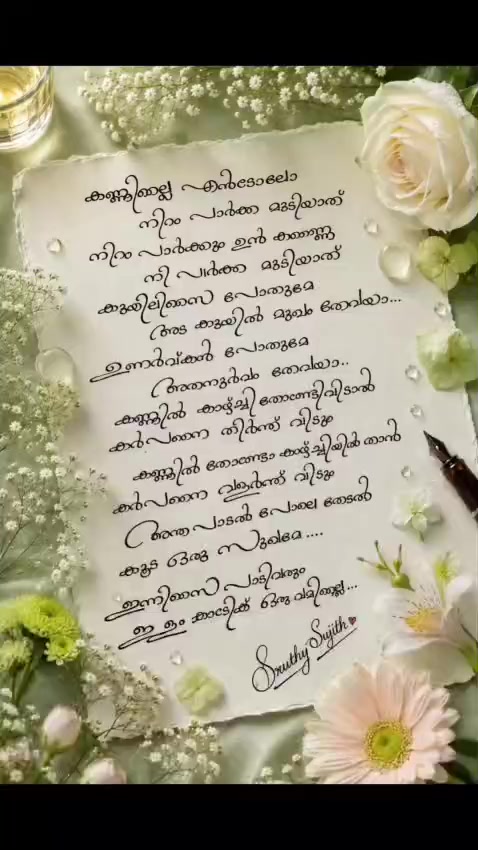 കണ്ണില്ല എൻട്രോലോ
നിറം പാർക്ക മുടിയാത്
നിറം പാർക്കും ഉൻ കണ്ണൈ
നീ പാർക്ക മുടിയാത്
കുയിലിസൈ പോതുമേ
അട കുയിൽ മുഖം തേവയാ...
ഉണർവ്കൾ പോതുമേ
അതനുർവം തേവയാ..
കണ്ണിൽ കാഴ്ച്ചി തോണ്ട്രിവിടാൽ
കർപനൈ തിർന്ത് വിടും
കണ്ണിൽ തോണ്ട്രാ കാഴ്ച്ചിയിൽ താൻ
കർപനൈ വളർന്ത് വിടും
അന്ത പാടൽ പോലെ തേടൽ
കൂട ഒരു സുഖമേ....
ഇന്നിസൈ പാടിവരും
ഇളം കാട്രിക്ക് ഒരുവമില്ലൈ...
Sruthy Sujith